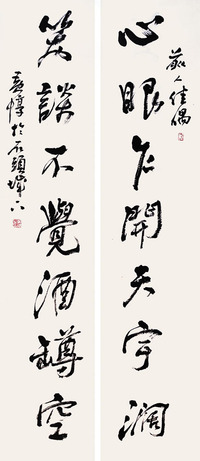 人佳偶
心眼乍開天宇濶
笑談不覺酒罇空
於石頭城下